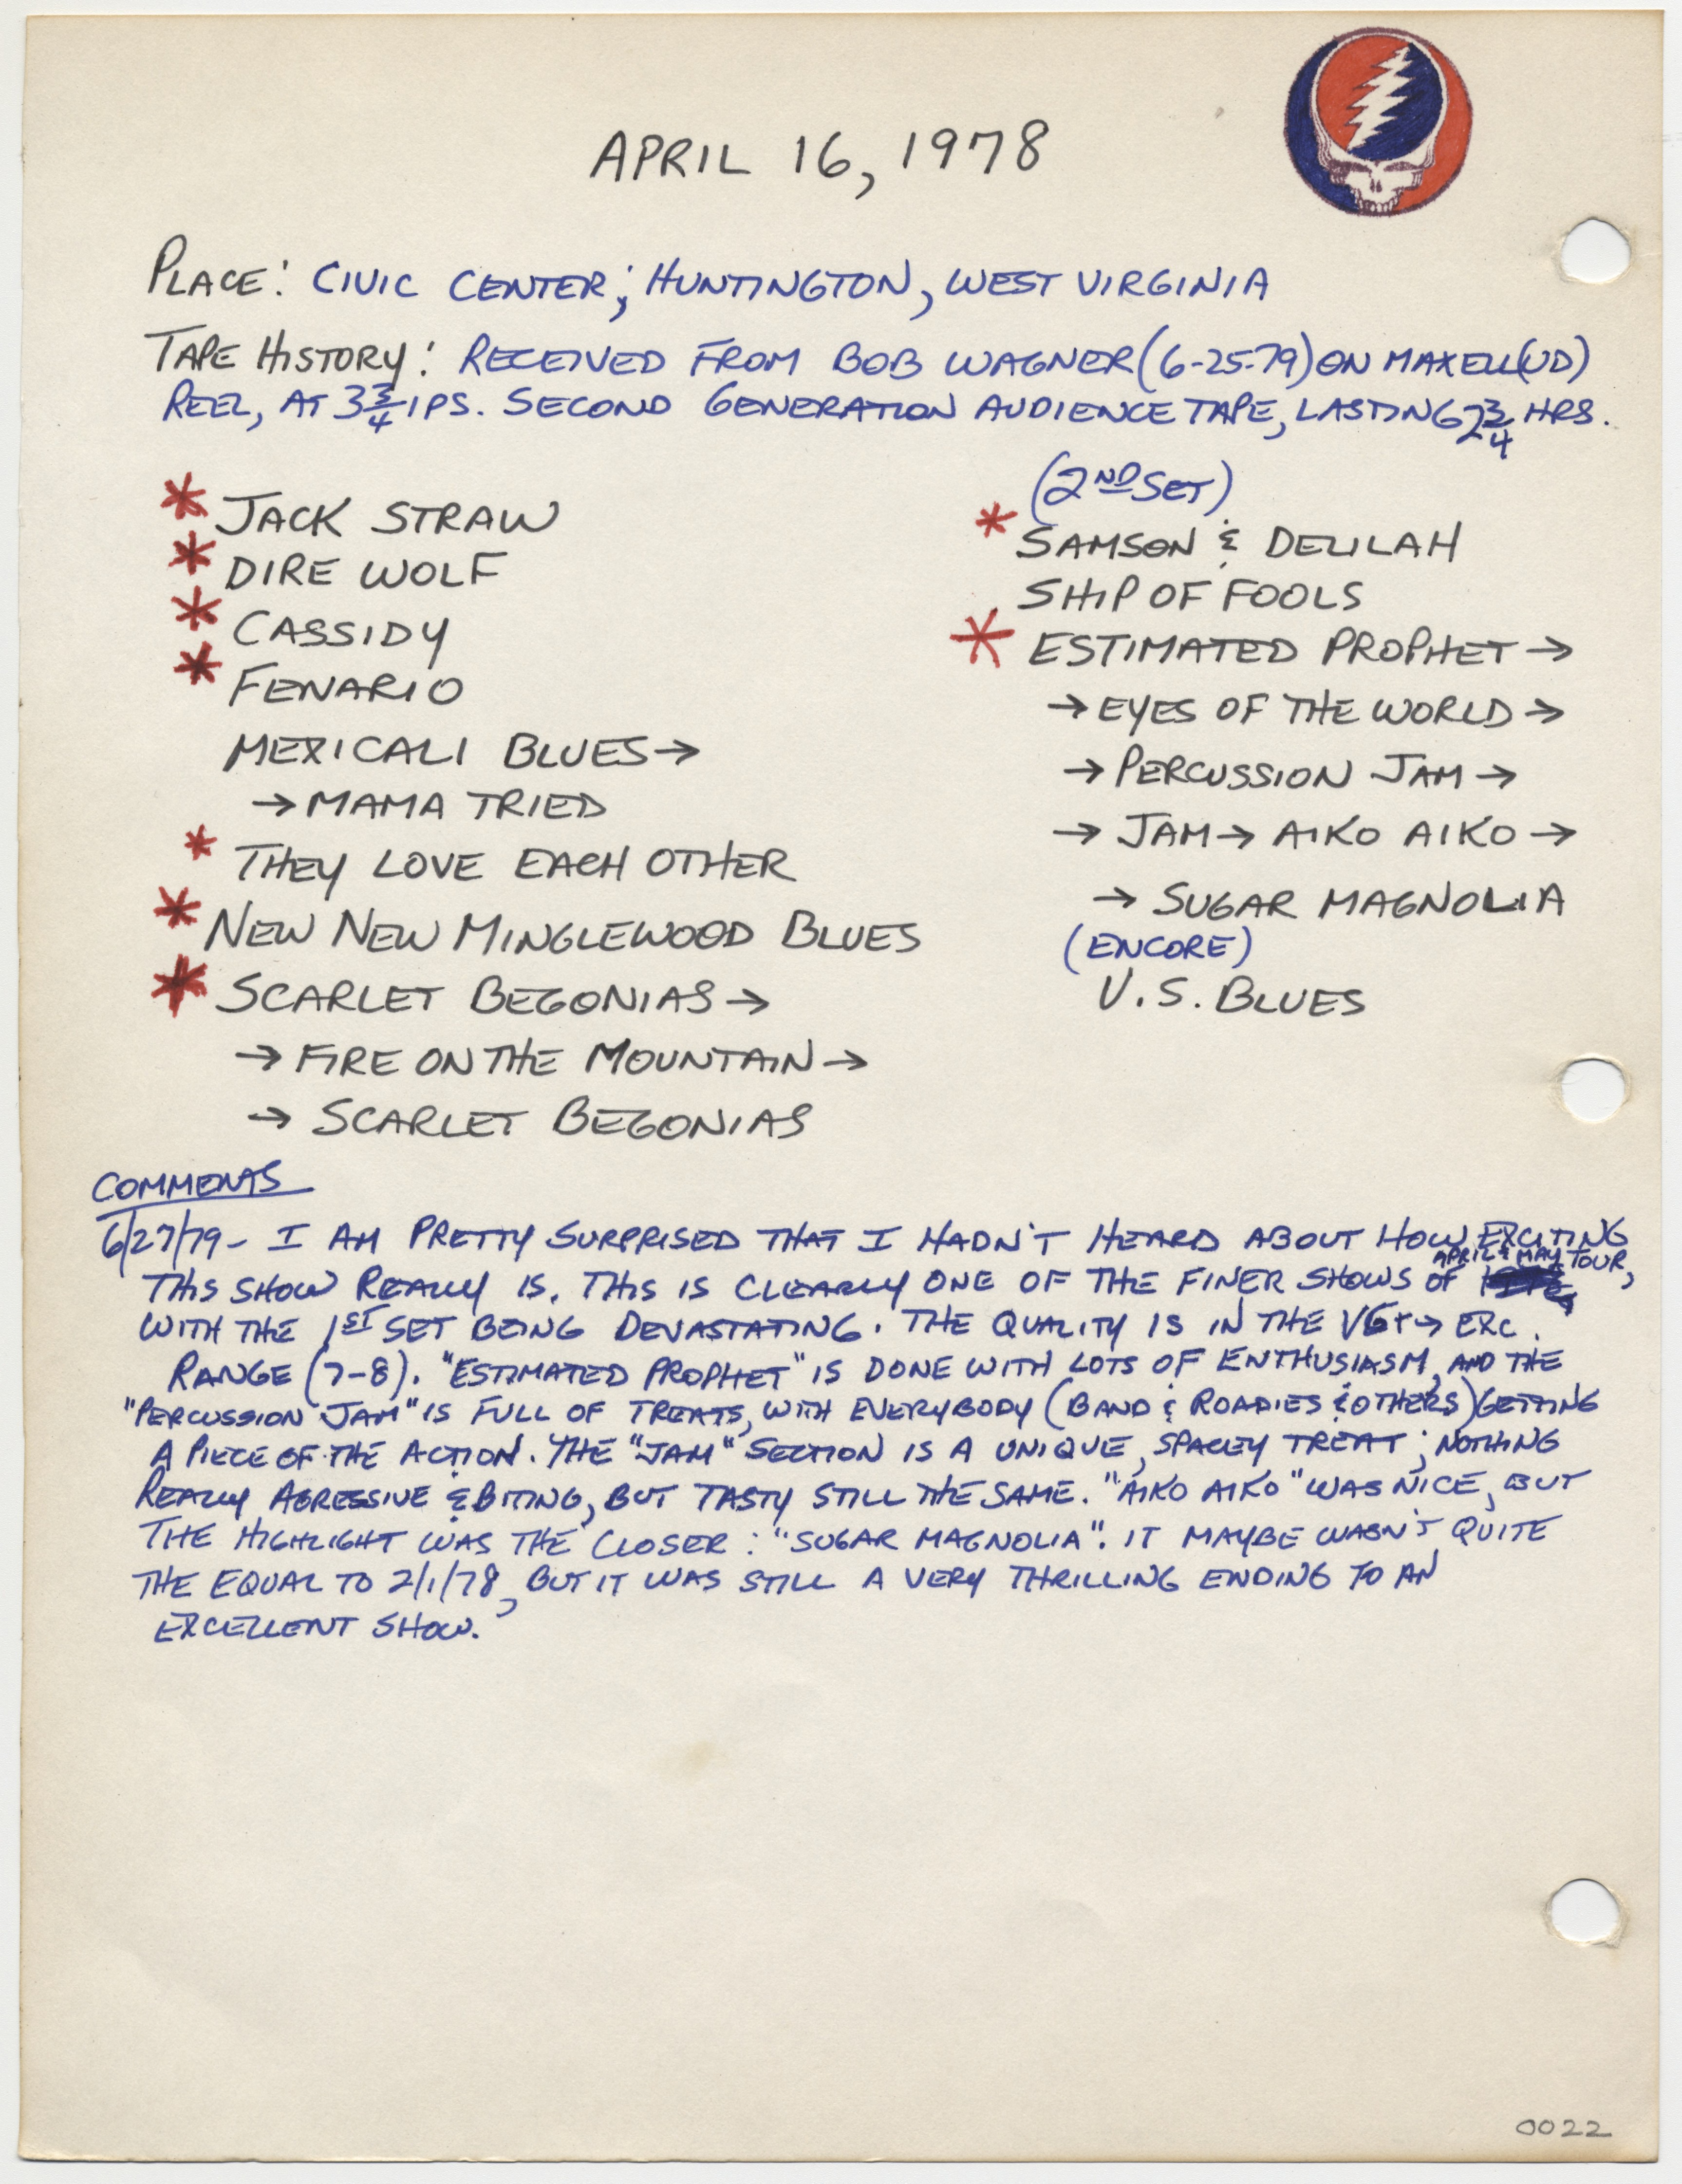 APRIL 16, 1978
PLACE: CIVIC CENTER; HUNTINGTON, WEST VIRGINIA
TAPE HISTORY: RECEIVED FROM BOB WAGNER (6-25-79) ON MAXELL (UD)
REEL, AT 3 3/4 IPS. SECOND GENERATION AUDIENCE TAPE, LASTING 2 3/4 HRS.
* JACK STRAW
* DIRE WOLF
* CASSIDY
* FENARIO
MEXICALI BLUES →
→ MAMA TRIED
* THEY LOVE EACH OTHER
* NEW NEW MINGLEWOOD BLUES
* SCARLET BEGONIAS →
→ FIRE ON THE MOUNTAIN →
→ SCARLET BEGONIAS
(2ND SET)
* SAMSON & DELILAH
SHIP OF FOOLS
* ESTIMATED PROPHET →
→ EYES OF THE WORLD →
→ PERCUSSION JAM →
→ JAM → AIKO AIKO →
→ SUGAR MAGNOLIA
(ENCORE)
U.S. BLUES
COMMENTS
6/27/79 - I AM PRETTY SURPRISED THAT I HADN'T HEARD ABOUT HOW EXCITING
THIS SHOW REALLY IS. THIS IS CLEARLY ONE OF THE FINER SHOWS OF APRIL & MAY TOUR,
WITH THE 1ST SET BEING DEVASTATING. THE QUALITY IS IN THE VG+ → EXC.
RANGE (7-8). "ESTIMATED PROPHET" IS DONE WITH LOTS OF ENTHUSIASM, AND THE
"PERCUSSION JAM" IS FULL OF TREATS, WITH EVERYBODY (BAND & ROADIES & OTHERS) GETTING
A PIECE OF THE ACTION. THE "JAM" SECTION IS A UNIQUE, SPACEY TREAT; NOTHING
REALLY AGRESSIVE & BITING, BUT TASTY STILL THE SAME. "AIKO AIKO" WAS NICE, BUT
THE HIGHLIGHT WAS THE CLOSER: "SUGAR MAGNOLIA". IT MAYBE WASN'T QUITE
THE EQUAL TO 2/1/78, BUT IT WAS STILL A VERY THRILLING ENDING TO AN
EXCELLENT SHOW.
0022